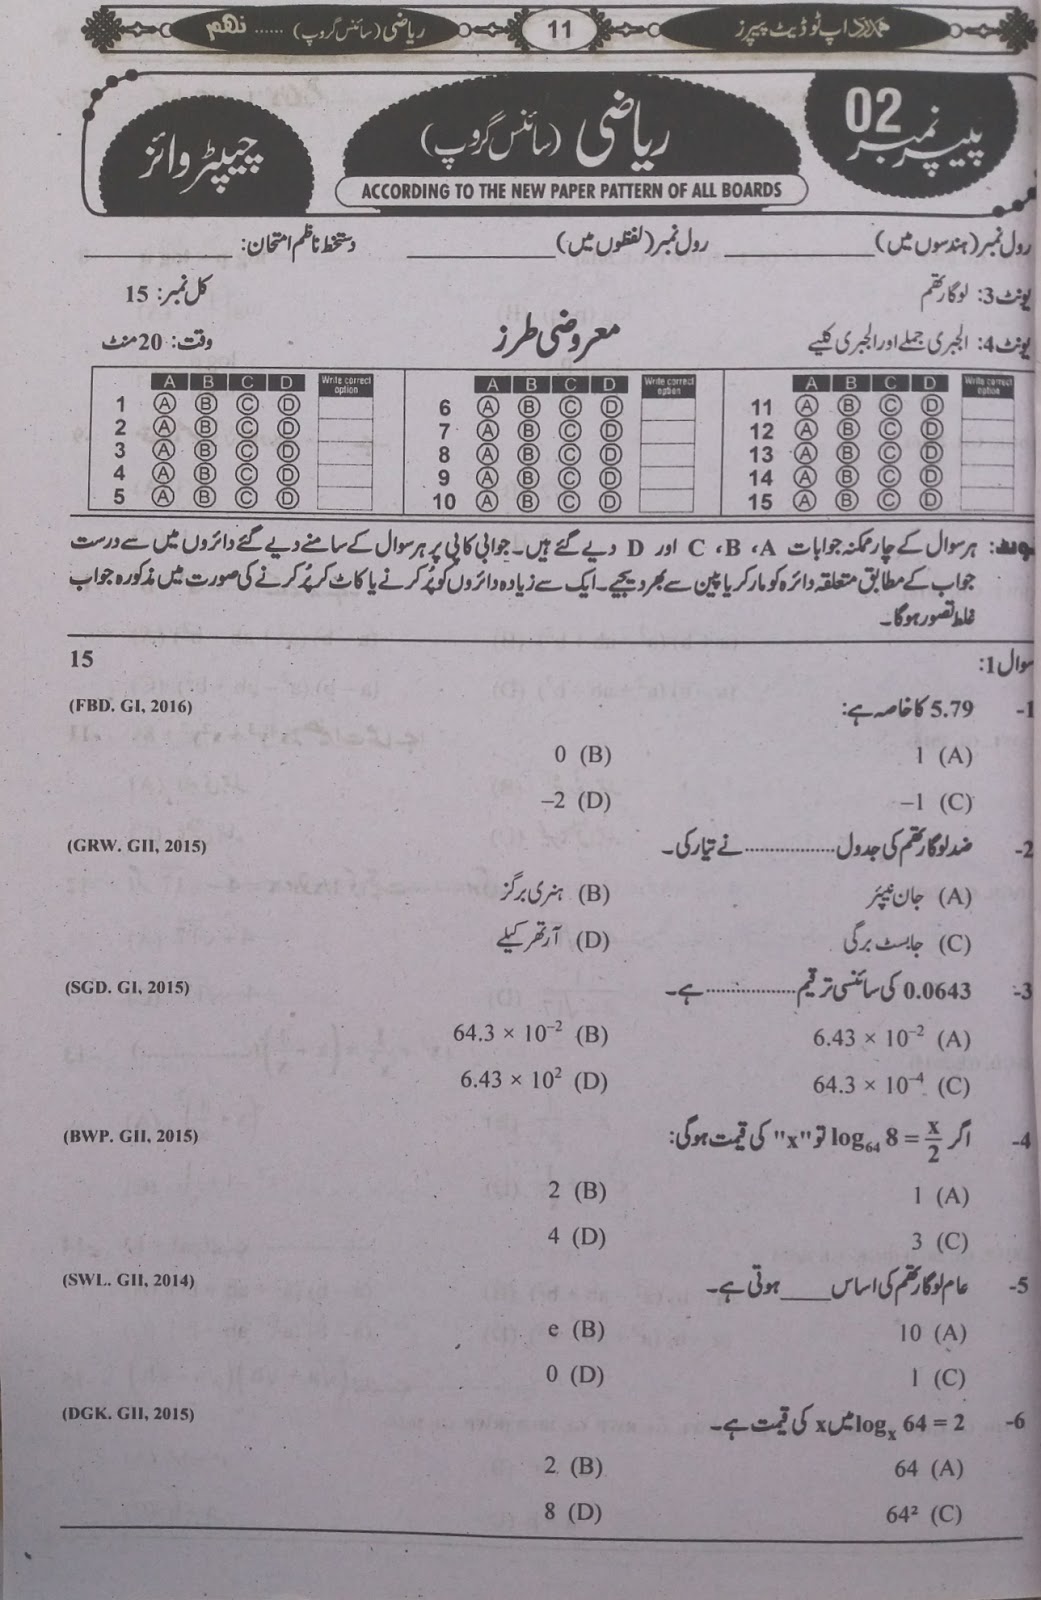 ہمدرد اپ ٹو ڈیٹ پیپرز 11 ریاضی (سائنس گروپ) ...... نہم
پیپر نمبر 02
ریاضی (سائنس گروپ)
چیپٹر وائز
ACCORDING TO THE NEW PAPER PATTERN OF ALL BOARDS
رول نمبر (ہندسوں میں) ________ رول نمبر (لفظوں میں) ________ دستخط ناظم امتحان: ________
یونٹ 3: لوگارتھم کل نمبر: 15
یونٹ 4: الجبری جملے اور الجبری کلیے معروضی طرز وقت: 20 منٹ
A B C D Write correct option A B C D Write correct option A B C D Write correct option
1 A B C D 6 A B C D 11 A B C D
2 A B C D 7 A B C D 12 A B C D
3 A B C D 8 A B C D 13 A B C D
4 A B C D 9 A B C D 14 A B C D
5 A B C D 10 A B C D 15 A B C D
نوٹ: ہر سوال کے چار ممکنہ جوابات A، B، C اور D دیے گئے ہیں۔ جوابی کاپی پر ہر سوال کے سامنے دیے گئے دائروں میں سے درست
جواب کے مطابق متعلقہ دائرہ کو مارکر یا پین سے بھر دیجیے۔ ایک سے زیادہ دائروں کو پُر کرنے یا کاٹ کر پُر کرنے کی صورت میں مذکورہ جواب
غلط تصور ہوگا۔
سوال 1: 15
1- 5.79 کا خاصہ ہے: (FBD. GI, 2016)
(A) 1 (B) 0
(C) –1 (D) –2
2- ضد لوگارتھم کی جدول .................. نے تیار کی۔ (GRW. GII, 2015)
(A) جان نیپئر (B) ہنری برگز
(C) جابسٹ برگی (D) آرتھر کیلے
3- 0.0643 کی سائنسی ترقیم .................. ہے۔ (SGD. GI, 2015)
(A) 6.43 × 10⁻² (B) 64.3 × 10⁻²
(C) 64.3 × 10⁻⁴ (D) 6.43 × 10²
4- اگر log₆₄ 8 = x/2 تو "x" کی قیمت ہوگی: (BWP. GII, 2015)
(A) 1 (B) 2
(C) 3 (D) 4
5- عام لوگارتھم کی اساس ____ ہوتی ہے۔ (SWL. GII, 2014)
(A) 10 (B) e
(C) 1 (D) 0
6- logₓ 64 = 2 میں x کی قیمت ہے۔ (DGK. GII, 2015)
(A) 64 (B) 2
(C) 64² (D) 8